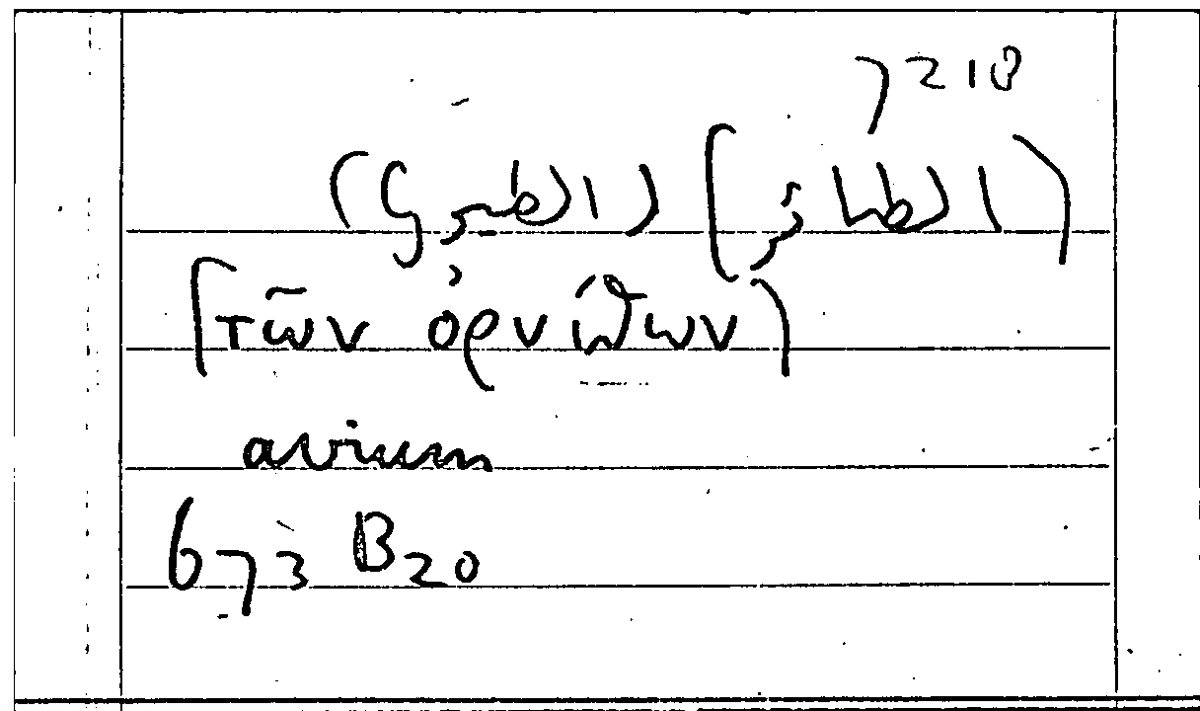 7218
[الطائر) (الطير
[τῶν ὀρνίθων)
avium
673 B20